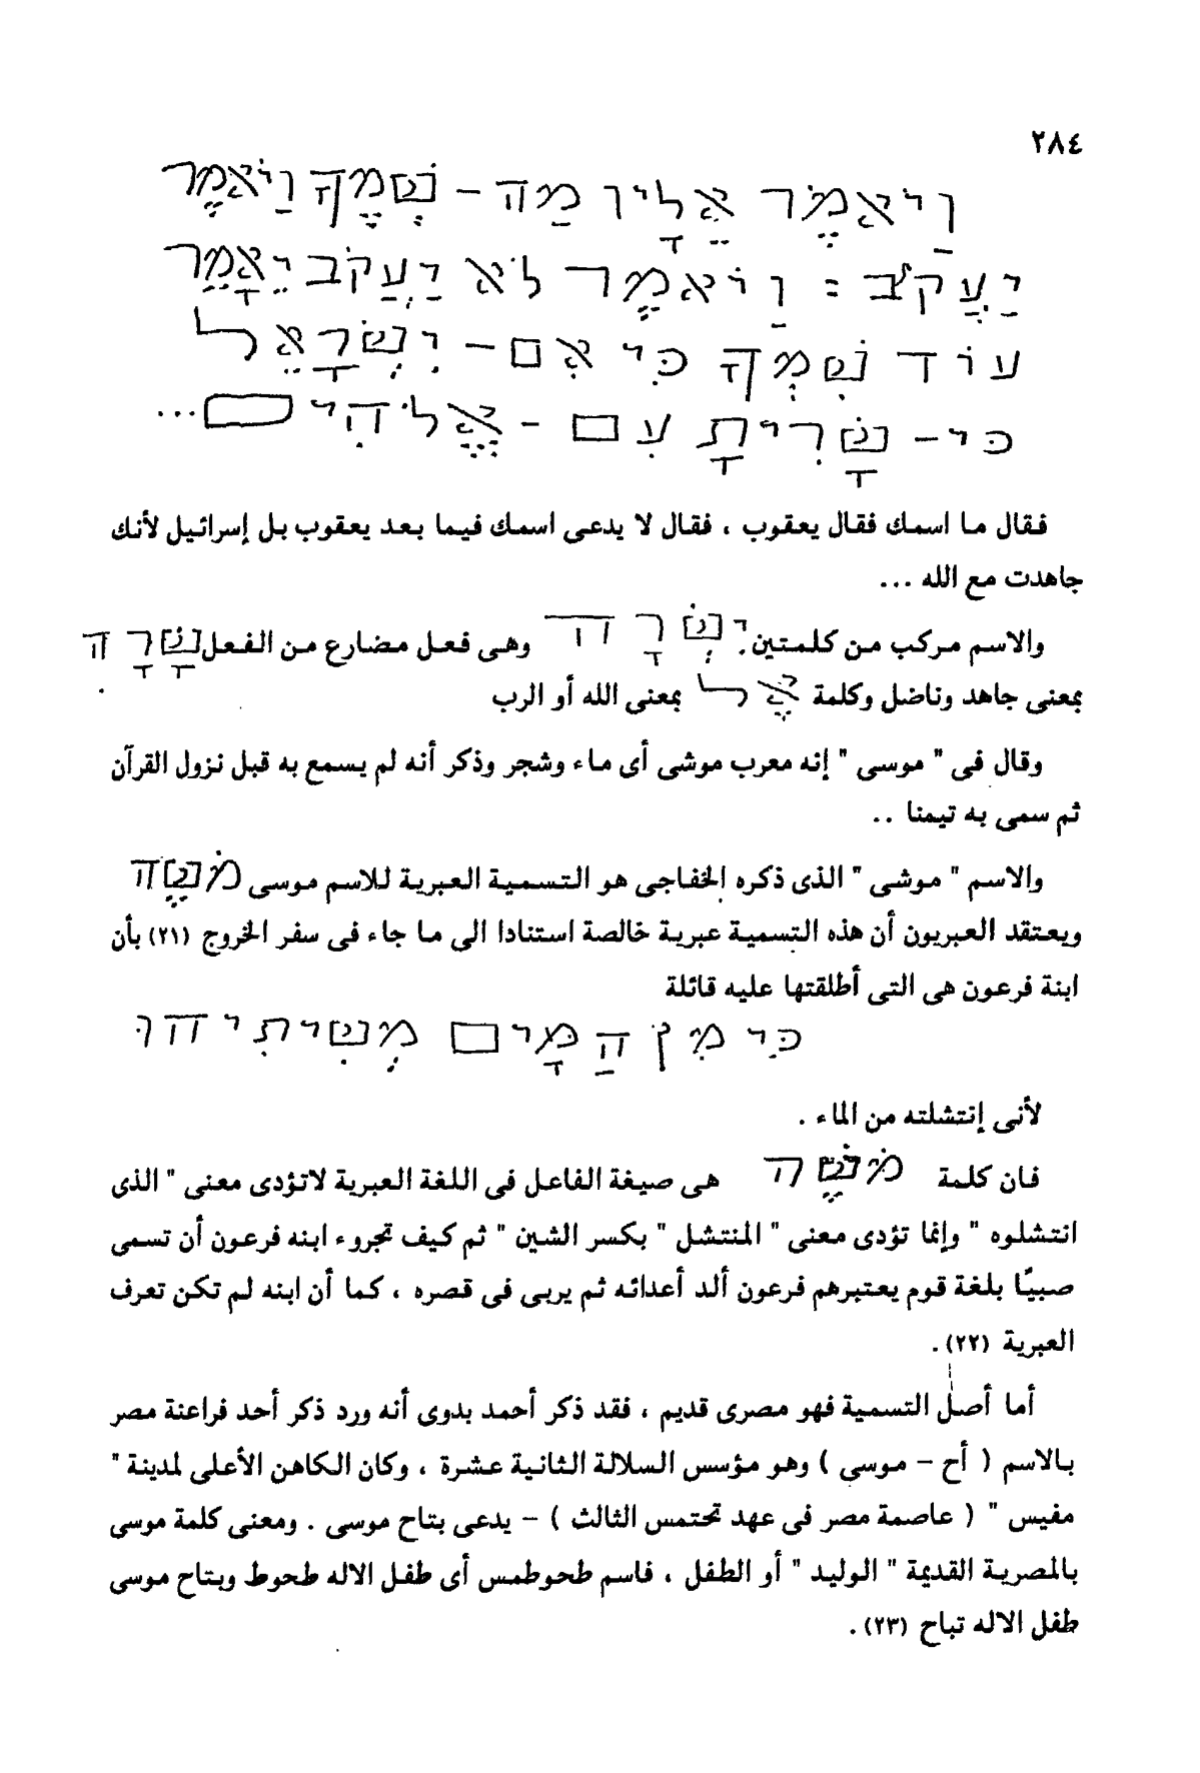 ٢٨٤
וַיֹּאמֶר אֵלָיו מַה – שְּׁמֶךָ וַיֹּאמֶר
יַעֲקֹב : וַיֹּאמֶר לֹא יַעֲקֹב יֵאָמֵר
עוֹד שִׁמְךָ כִּי אִם – יִשְׂרָאֵל
כִּי – שָׂרִיתָ עִם – אֱלֹהִים ...
فقال ما اسمك فقال يعقوب ، فقال لا يدعى اسمك فيما بعد يعقوب بل إسرائيل لأنك
جاهدت مع الله ...
والاسم مركب من كلمتين יִשְׂרָה وهى فعل مضارع من الفعل שָׂרָה
بمعنى جاهد وناضل وكلمة אֵל بمعنى الله أو الرب
وقال فى " موسى " إنه معرب موشى أى ماء وشجر وذكر أنه لم يسمع به قبل نزول القرآن
ثم سمى به تيمنا ..
والاسم " موشى " الذى ذكره الخفاجى هو التسمية العبرية للاسم موسى מֹשֶׁה
ويعتقد العبريون أن هذه التسمية عبرية خالصة استنادا الى ما جاء فى سفر الخروج (٢١) بأن
ابنة فرعون هى التى أطلقتها عليه قائلة
כִּי מִן הַמָּים מְשִׁיתִיהוּ
لأنى إنتشلته من الماء .
فان كلمة מֹשֶׁה هى صيغة الفاعل فى اللغة العبرية لاتؤدى معنى " الذى
انتشلوه " وإنما تؤدى معنى " المنتشل " بكسر الشين " ثم كيف تجروء ابنه فرعون أن تسمى
صبيًا بلغة قوم يعتبرهم فرعون ألد أعدائه ثم يربى فى قصره ، كما أن ابنه لم تكن تعرف
العبرية (٢٢) .
أما أصل التسمية فهو مصرى قديم ، فقد ذكر أحمد بدوى أنه ورد ذكر أحد فراعنة مصر
بالاسم ( أح – موسى ) وهو مؤسس السلالة الثانية عشرة ، وكان الكاهن الأعلى لمدينة "
مفيس " ( عاصمة مصر فى عهد تحتمس الثالث ) – يدعى بتاح موسى . ومعنى كلمة موسى
بالمصرية القديمة " الوليد " أو الطفل ، فاسم طحوطمس أى طفل الاله طحوط وبتاح موسى
طفل الاله تباح (٢٣) .